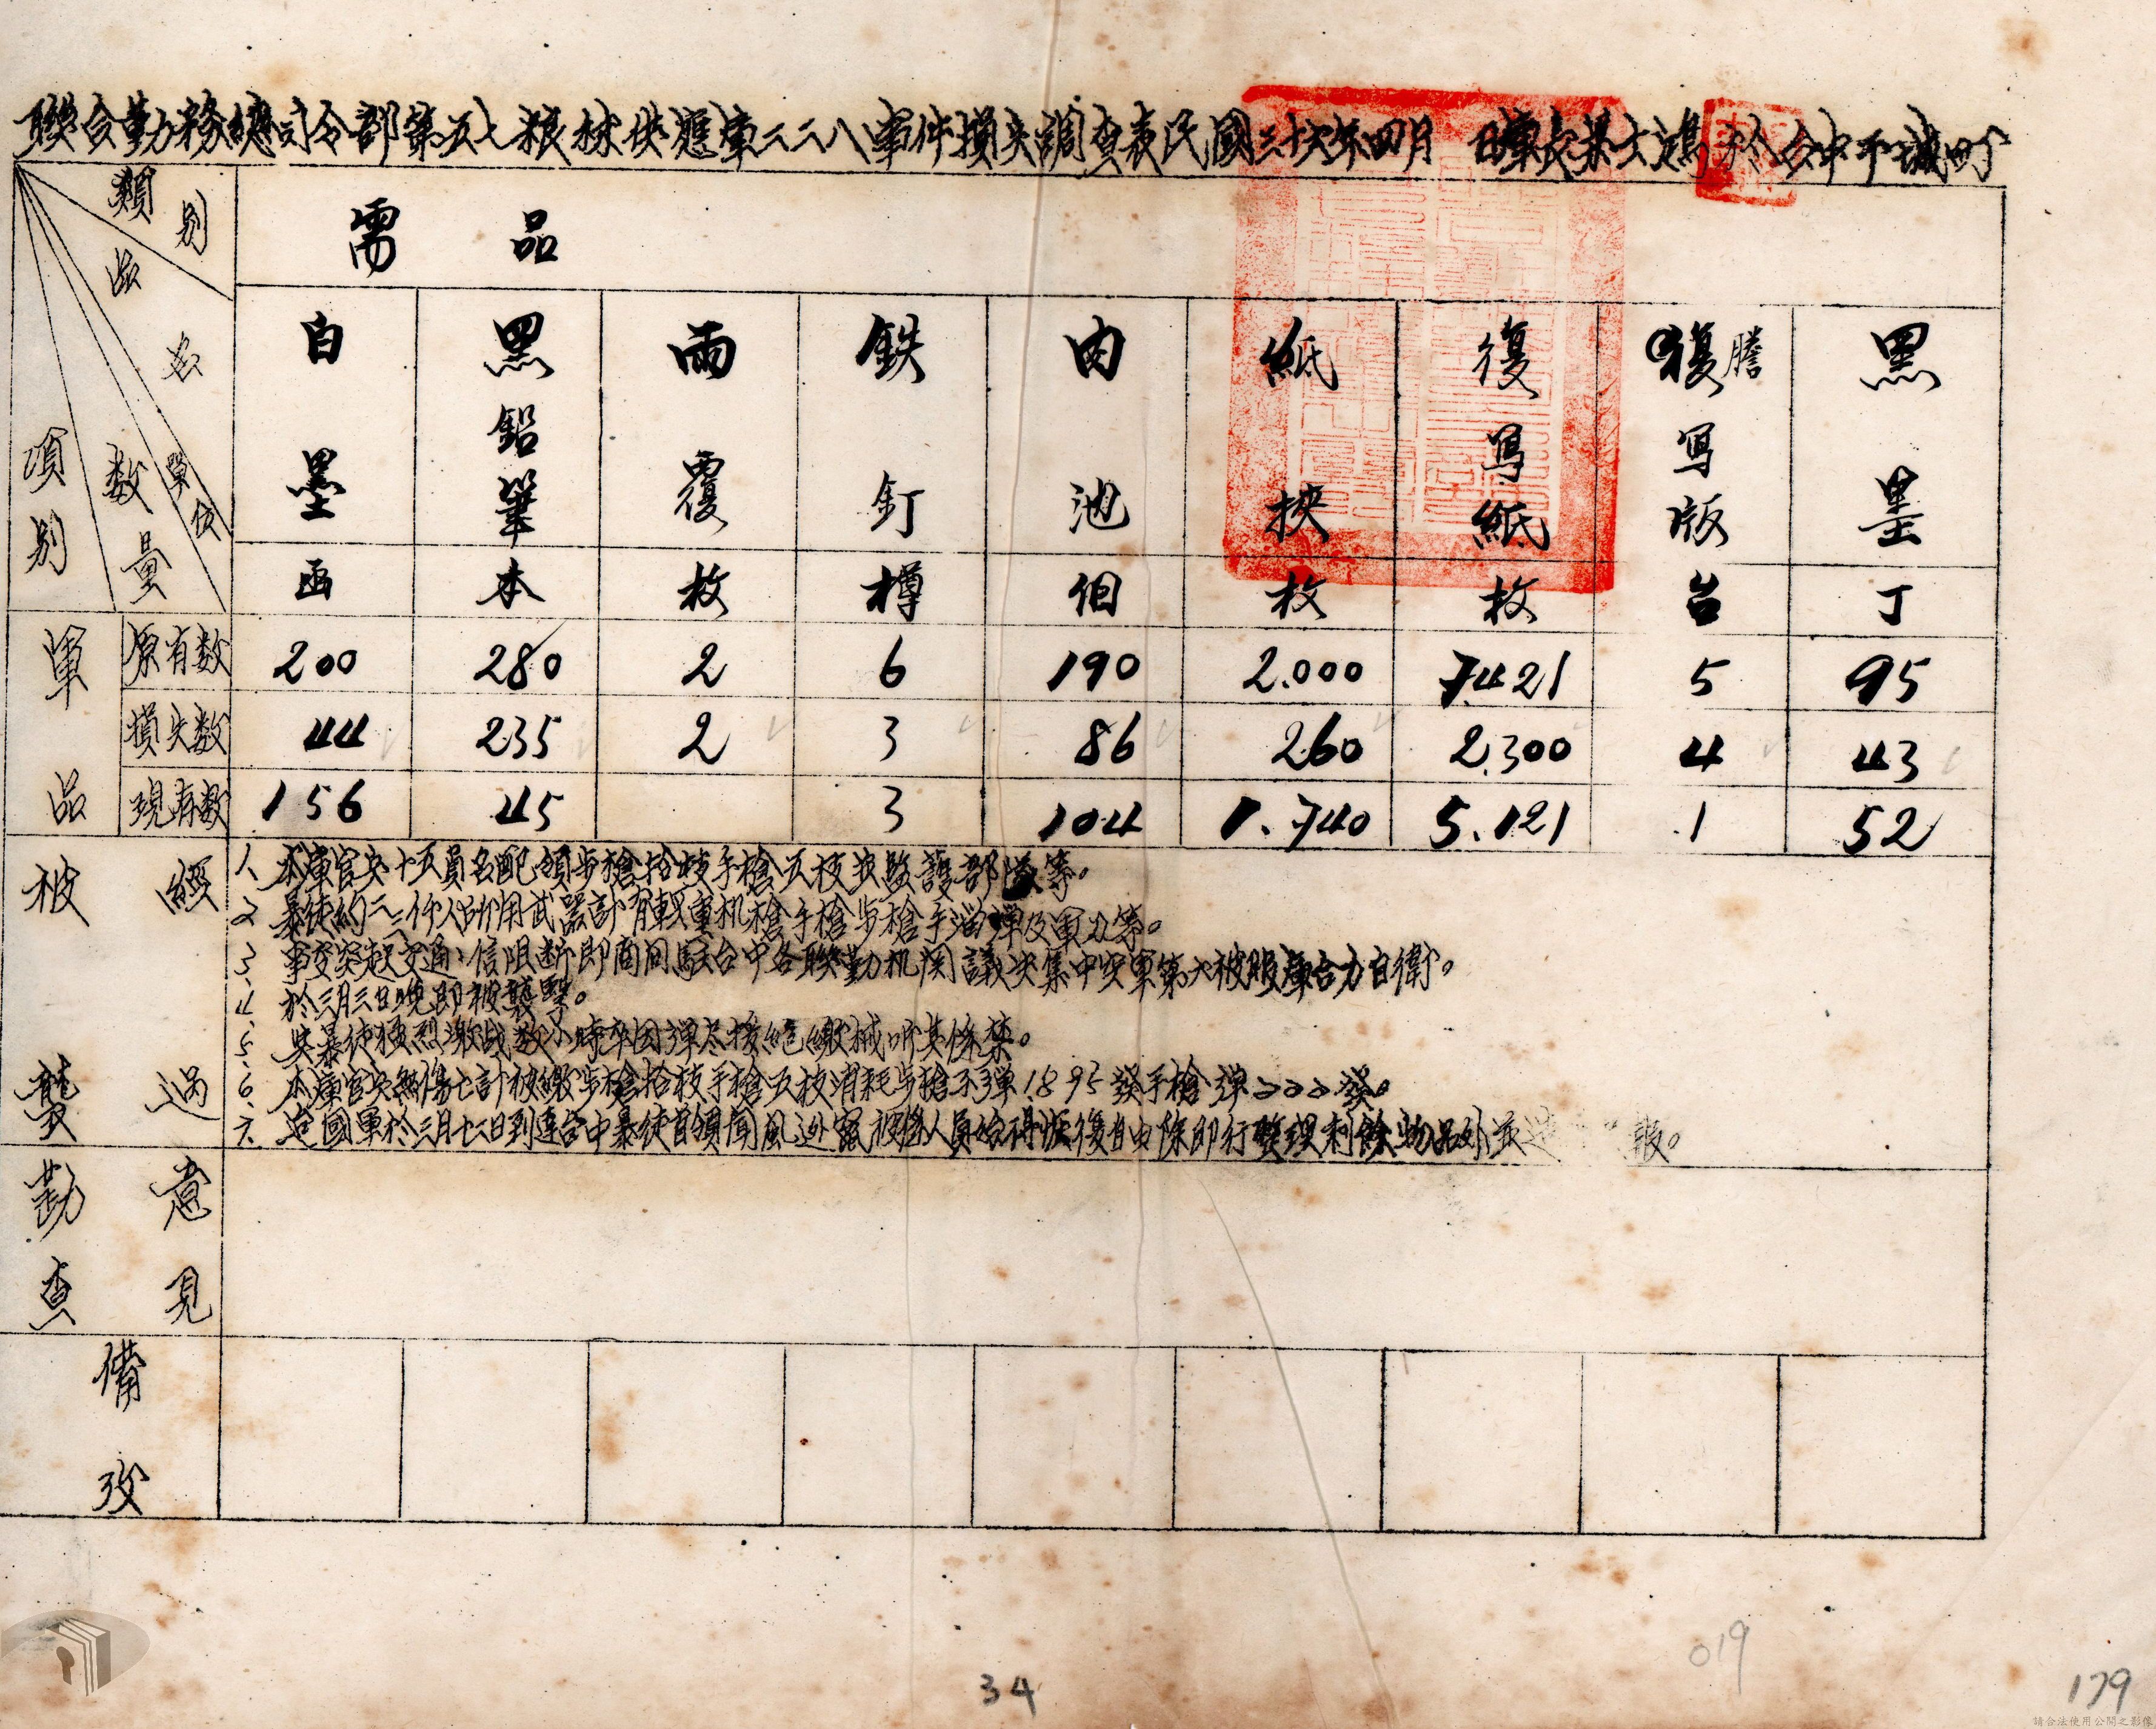 聯合勤務總司令部第五七粮秣供應庫二二八事件損失調查表民國三十六年四月 日庫長 於台中平城町
類別
品名
單位
数量
項別
需品
白墨 黑鉛筆 雨覆 鉄釘 肉池 紙挾 復写紙 複謄写版 黑墨
函 本 枚 樽 個 枚 枚 台 丁
軍品
原有数 200 280 2 6 190 2.000 7.421 5 95
損失数 44 235 2 3 86 260 2.300 4 43
現存数 156 45 3 104 1.740 5.121 1 52
被襲經過
1、本庫官兵十五員名配領步槍拾枝手槍五枝及監護部隊等。
2、暴徒約二三仟人所用武器計有輕重机槍手槍步槍手溜彈及軍刀等。
3、事变突起交通通信阻断即商同駐台中各聯勤机関議决集中空軍第六被服庫合力自衛。
4、於三月三日晚即被襲擊。
5、與暴徒極烈激战数小時卒因彈尽援絕繳械听其係禁。
6、本庫官兵無傷亡計被繳步槍拾枝手槍五枝消耗步槍子彈1895發手槍彈 發。
六、迨國軍於三月十三日到達台中暴徒首領聞風逃竄被係人員始得恢復自由除即行整理剩餘物品外並造 報。
勘查意見
備攷
34
019
179
請合法使用公開之影像